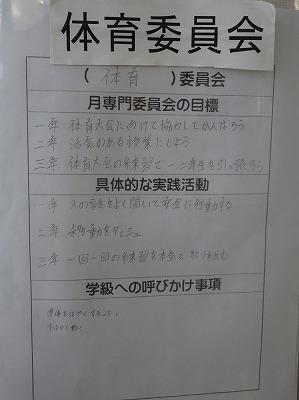 体育委員会
( 体育 )委員会
月専門委員会の目標
一年 体育大会にむけて協力してがんばろう
二年 活気のある授業にしよう
三年 体育大会の練習で一、二年生を引っ張ろう
具体的な実践活動
一年 人の話をよく聞いて安全に行動する
二年 移動をダッシュ
三年 一回一回の練習を本気で取り組む
学級への呼びかけ事項
準備をはやくすること。
すばやく動く。